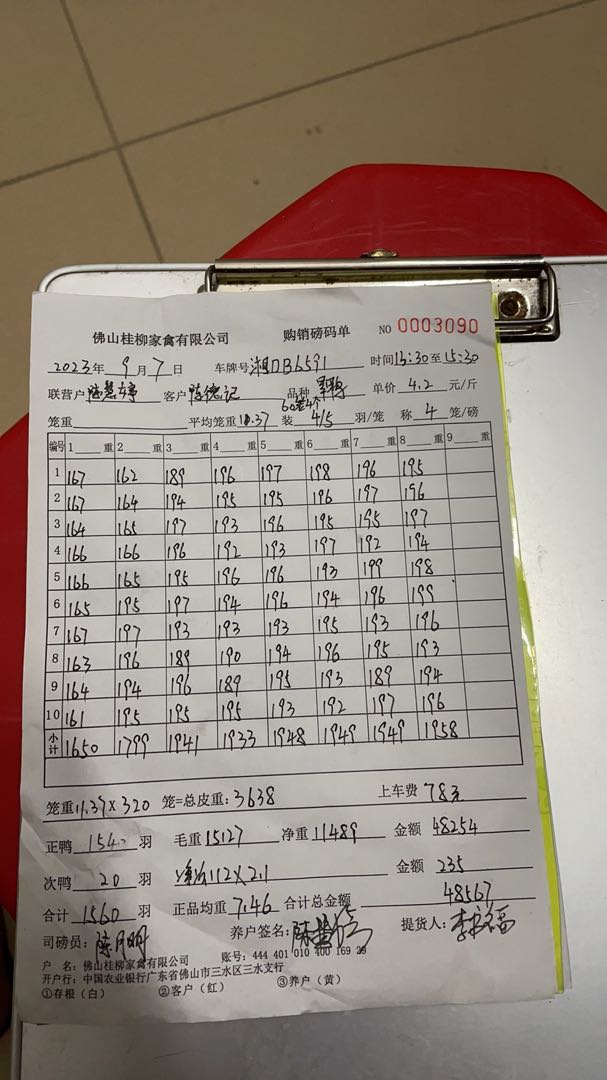 佛山桂柳家禽有限公司 购销磅码单 NO 0003090
2023年 9月 7日 车牌号 湘DB6591 时间13:30至15:30
联营户 陈慧婷 客户 陈德记 品种 单价 4.2 元/斤
60笼4个
笼重 平均笼重 11.37 装 4/5 羽/笼 称 4 笼/磅
编号 1 重 2 重 3 重 4 重 5 重 6 重 7 重 8 重 9 重
1 167 162 189 196 197 198 196 195
2 167 164 194 195 195 196 197 196
3 164 165 197 193 196 195 195 197
4 166 166 196 192 193 197 192 194
5 166 165 195 196 196 193 199 198
6 165 195 197 194 196 194 196 199
7 167 197 193 193 193 195 193 196
8 163 196 189 190 194 196 195 193
9 164 194 196 189 195 193 189 194
10 161 195 195 195 193 192 197 196
小计 1650 1799 1941 1933 1948 1949 1949 1958
笼重11.37×320 笼=总皮重:3638 上车费 78元
正鸭 1540 羽 毛重 15127 净重 11489 金额 48254
次鸭 20 羽 112×2.1 金额 235
合计 1560 羽 正品均重 7.46 合计总金额 48567
司磅员: 陈月明 养户签名: 提货人:
户 名:佛山桂柳家禽有限公司 账号:444 401 010 400 169 29
开户行:中国农业银行广东省佛山市三水区三水支行
①存根(白) ②客户(红) ③养户(黄)